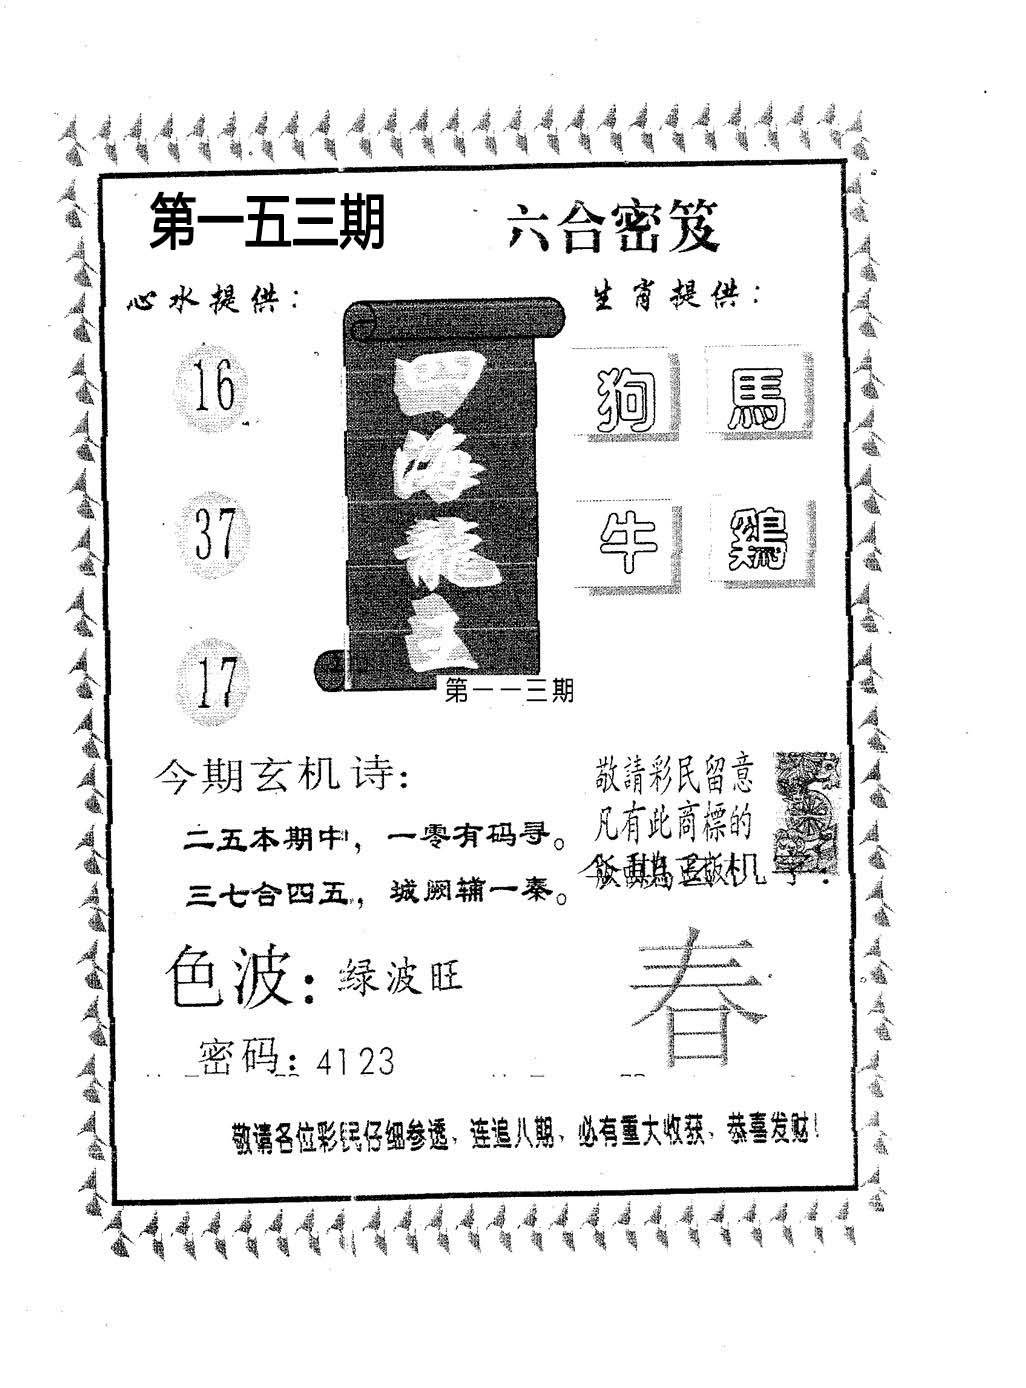 第一五三期
六合密笈
心水提供：
生肖提供：
16
37
17
四海龍王
狗 馬
牛 鷄
第一一三期
今期玄机诗：
二五本期中，一零有码寻。
三七合四五，城阙辅一秦。
敬請彩民留意
凡有此商標的
色波：绿波旺
春
密码：4123
敬请各位彩民仔细参透、连追八期、必有重大收获、恭喜发财！